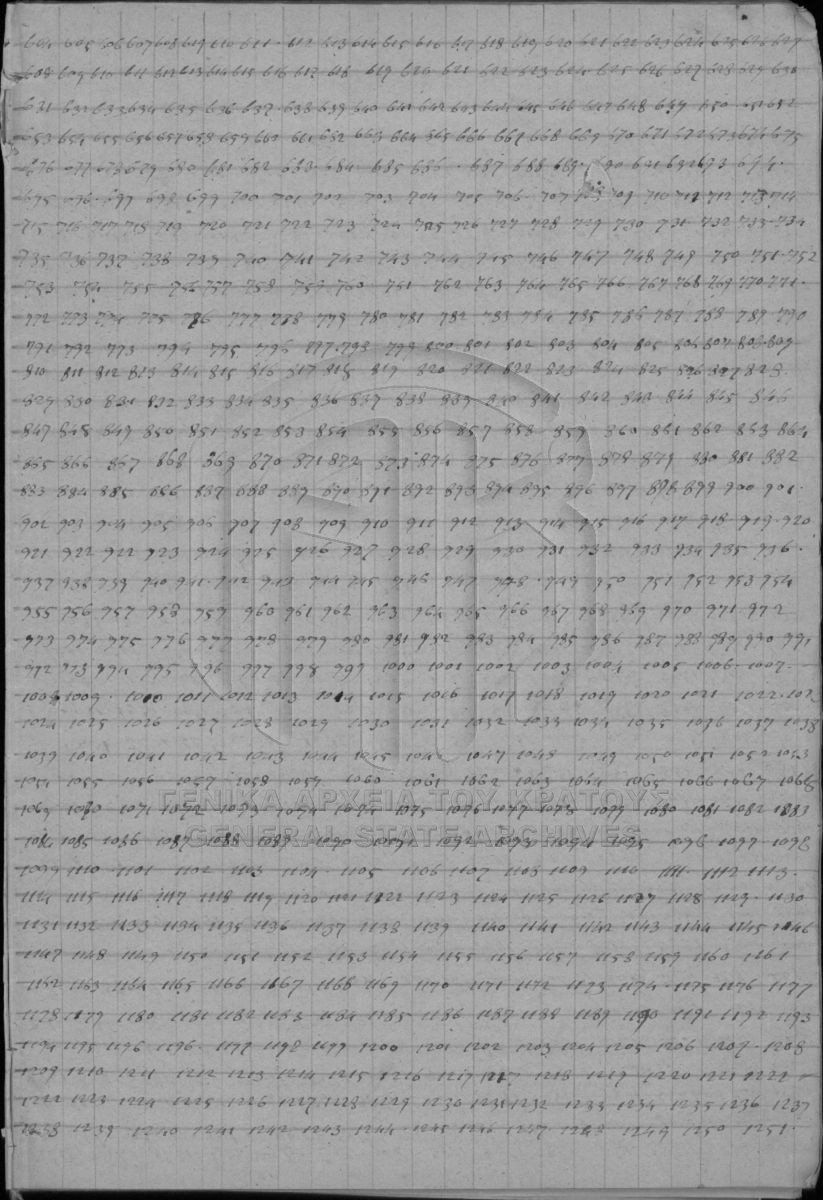 604 605 606 607 608 609 610 611 · 612 613 614 615 616 617 618 619 620 621 622 623 624 625 626 627
608 609 610 611 612 613 614 615 616 617 618 619 620 621 622 623 624 625 626 627 628 629 630
631 632 633 634 635 636 637 638 639 640 641 642 643 644 645 646 647 648 649 650 651 652
653 654 655 656 657 658 659 660 661 662 663 664 665 666 667 668 669 670 671 672 673 674 675
676 677 678 679 680 681 682 683 684 685 686 · 687 688 689 690 691 692 693 694 ·
695 696 · 697 698 699 700 701 702 703 704 705 706 · 707 708 709 710 711 712 713 714
715 716 717 718 719 720 721 722 723 724 725 726 727 728 729 730 731 732 733 · 734
735 736 737 738 739 740 741 742 743 744 745 746 747 748 749 750 751 · 752
753 754 755 756 757 758 759 760 761 762 763 764 765 766 767 768 769 770 771 ·
772 773 774 775 776 777 778 779 780 781 782 783 784 785 786 787 788 789 790
791 792 793 794 795 796 797 · 798 799 800 801 802 803 804 805 806 807 808 · 809
810 811 812 813 814 815 816 817 818 819 820 821 822 823 824 825 826 827 828
829 830 831 832 833 834 835 836 837 838 839 840 841 842 843 844 845 846
847 848 849 850 851 852 853 854 855 856 857 858 859 860 861 862 863 864
865 866 867 868 869 870 871 872 873 874 875 876 877 878 879 880 881 882
883 884 885 886 887 888 889 890 891 892 893 894 895 896 897 898 899 900 901 ·
902 903 904 905 906 907 908 909 910 911 912 913 914 915 916 917 918 919 · 920
921 922 922 923 924 925 926 927 928 929 930 931 932 933 934 935 936 ·
937 938 939 940 941 · 942 943 944 945 946 947 948 · 949 950 951 952 953 954
955 956 957 958 959 960 961 962 963 964 965 966 967 968 969 970 971 972
973 974 975 976 977 978 979 980 981 982 983 984 985 986 987 988 989 990 991
992 993 994 995 996 997 998 999 1000 1001 1002 1003 1004 1005 1006 · 1007 ·
1008 1009 · 1010 1011 1012 1013 1014 1015 1016 1017 1018 1019 1020 1021 1022 · 1023
1024 1025 1026 1027 1028 1029 1030 1031 1032 1033 1034 1035 1036 1037 1038
1039 1040 1041 1042 1043 1044 1045 1046 1047 1048 1049 1050 1051 1052 1053
1054 1055 1056 1057 1058 1059 1060 1061 1062 1063 1064 1065 1066 1067 1068
ΓΕΝΙΚΑ ΑΡΧΕΙΑ ΤΟΥ ΚΡΑΤΟΥΣ
1069 1070 1071 1072 1073 1074 1074 1075 1076 1077 1078 1079 1080 1081 1082 1083
GENERAL STATE ARCHIVES
1084 1085 1086 1087 1088 1089 1090 1091 1092 1093 1094 1095 1096 1097 1098
1099 1100 1101 1102 1103 1104 · 1105 1106 1107 1108 1109 1110 1111 · 1112 1113 ·
1114 1115 1116 1117 1118 1119 1120 1121 1122 1123 1124 1125 1126 1127 1128 1129 · 1130
1131 1132 1133 1134 1135 1136 1137 1138 1139 1140 1141 1142 1143 1144 1145 1146
1147 1148 1149 1150 1151 1152 1153 1154 1155 1156 1157 1158 1159 1160 1161
1162 1163 1164 1165 1166 1167 1168 1169 1170 1171 1172 1173 1174 · 1175 1176 1177
1178 1179 1180 1181 1182 1183 1184 1185 1186 1187 1188 1189 1190 1191 1192 1193
1194 1195 1196 1196 · 1197 1198 1199 1200 1201 1202 1203 1204 1205 1206 1207 · 1208
1209 1210 1211 1212 1213 1214 1215 1216 1217 1217 1218 1219 1220 1221 1222
1222 1223 1224 1225 1226 1227 1228 1229 1230 1231 1232 1233 1234 1235 1236 1237
1238 1239 1240 1241 1242 1243 1244 · 1245 1246 1247 1248 1249 1250 1251 ·